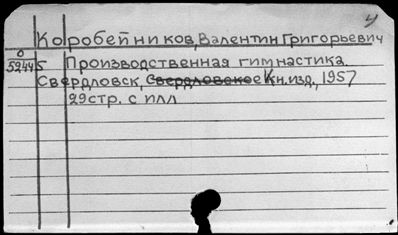 ч
Коробейников, Валентин Григорьевич
О
5944 5 Производственная гимнастика.
Свердловск, Свердловское Кн.изд., 1957
29стр. с илл